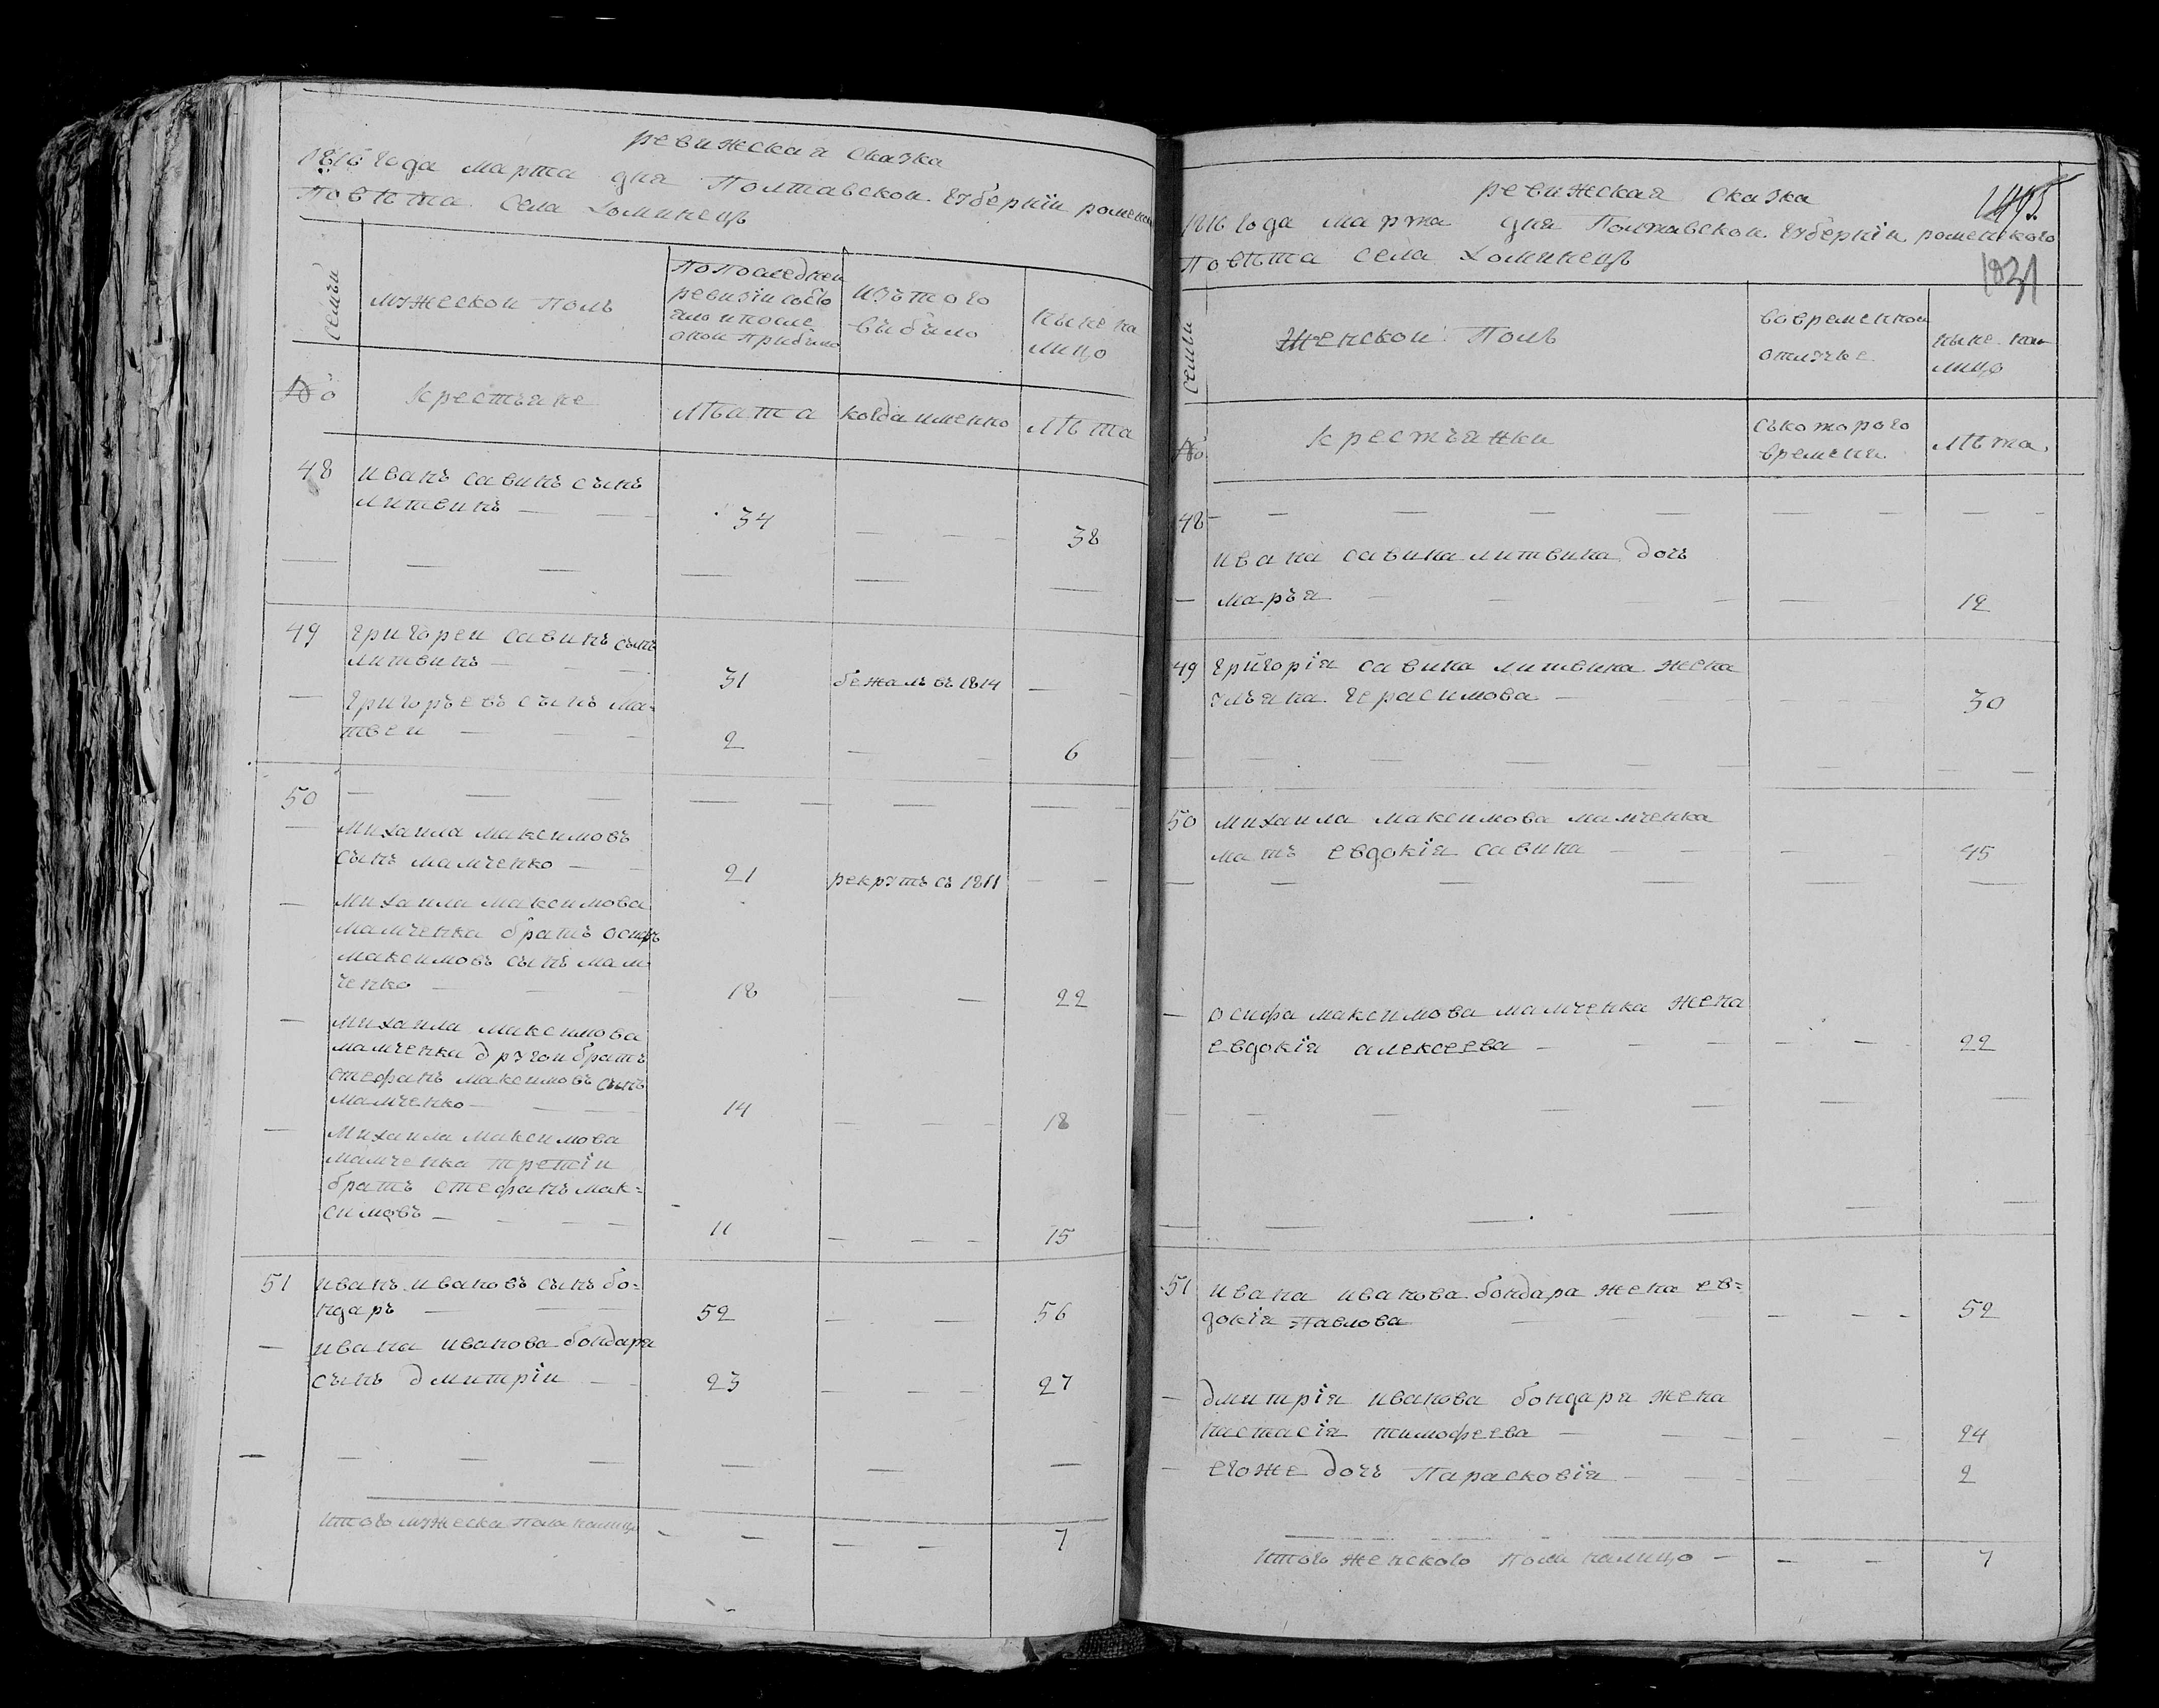 ревижская сказка
1816 года марта дня Полтавской губернїи ромен
Повѣта села Хоминецъ
семьи
мужеской полъ
По последней
ревизїи состо
яло и после
оной прибыло
изъ того
выбыло
ныне на
лицо
№
крестьяне
Лѣта
когда именно
лѣта
48
иванъ савинъ сынъ
литвинъ — —
34
— — —
38
49
григореи савинъ сынъ
литвинъ —
31
бежалъ въ 1814
— —
григорьевъ сынъ ма=
твеи — —
2
— —
6
50
михаила максимовъ
сынъ мамченко —
21
рекрутъ съ 1811
— —
михаила максимова
мамченка братъ осипъ
максимовъ сынъ мам=
ченко — —
18
— —
22
михаила максимова
мамченка другои братъ
стефанъ максимовъ сынъ
мамченко —
14
— — —
18
михаила максимова
мамченка третїи
братъ стефанъ мак=
симовъ —
11
— — —
15
51
иванъ ивановъ сынъ бо=
ндаръ —
52
— —
56
ивана иванова бондаря
сынъ дмитрїи —
23
— — —
27
Итого мужеска пола налицо
7
ревижская сказка
1495
1816 года марта дня Полтавской губернїи роменского
Повѣта села Хоминецъ
1031
семьи
Женской полъ
во временной
отлучке
ныне на
лицо
№
крестьянки
съ которого
времени
лѣта
48
ивана савина литвина дочь
марья —
12
49
григорїя савина литвина жена
ульяна герасимова —
30
50
михаила максимова мамченка
мать евдокїя савина —
45
осифа максимова мамченка жена
евдокїя алексеева —
22
51
ивана иванова бондара жена ев=
докїя павлова
52
дмитрїя иванова бондаря жена
настасїя тимофеева —
24
егоже дочь Парасковїя —
2
Итого женского пола налицо —
7